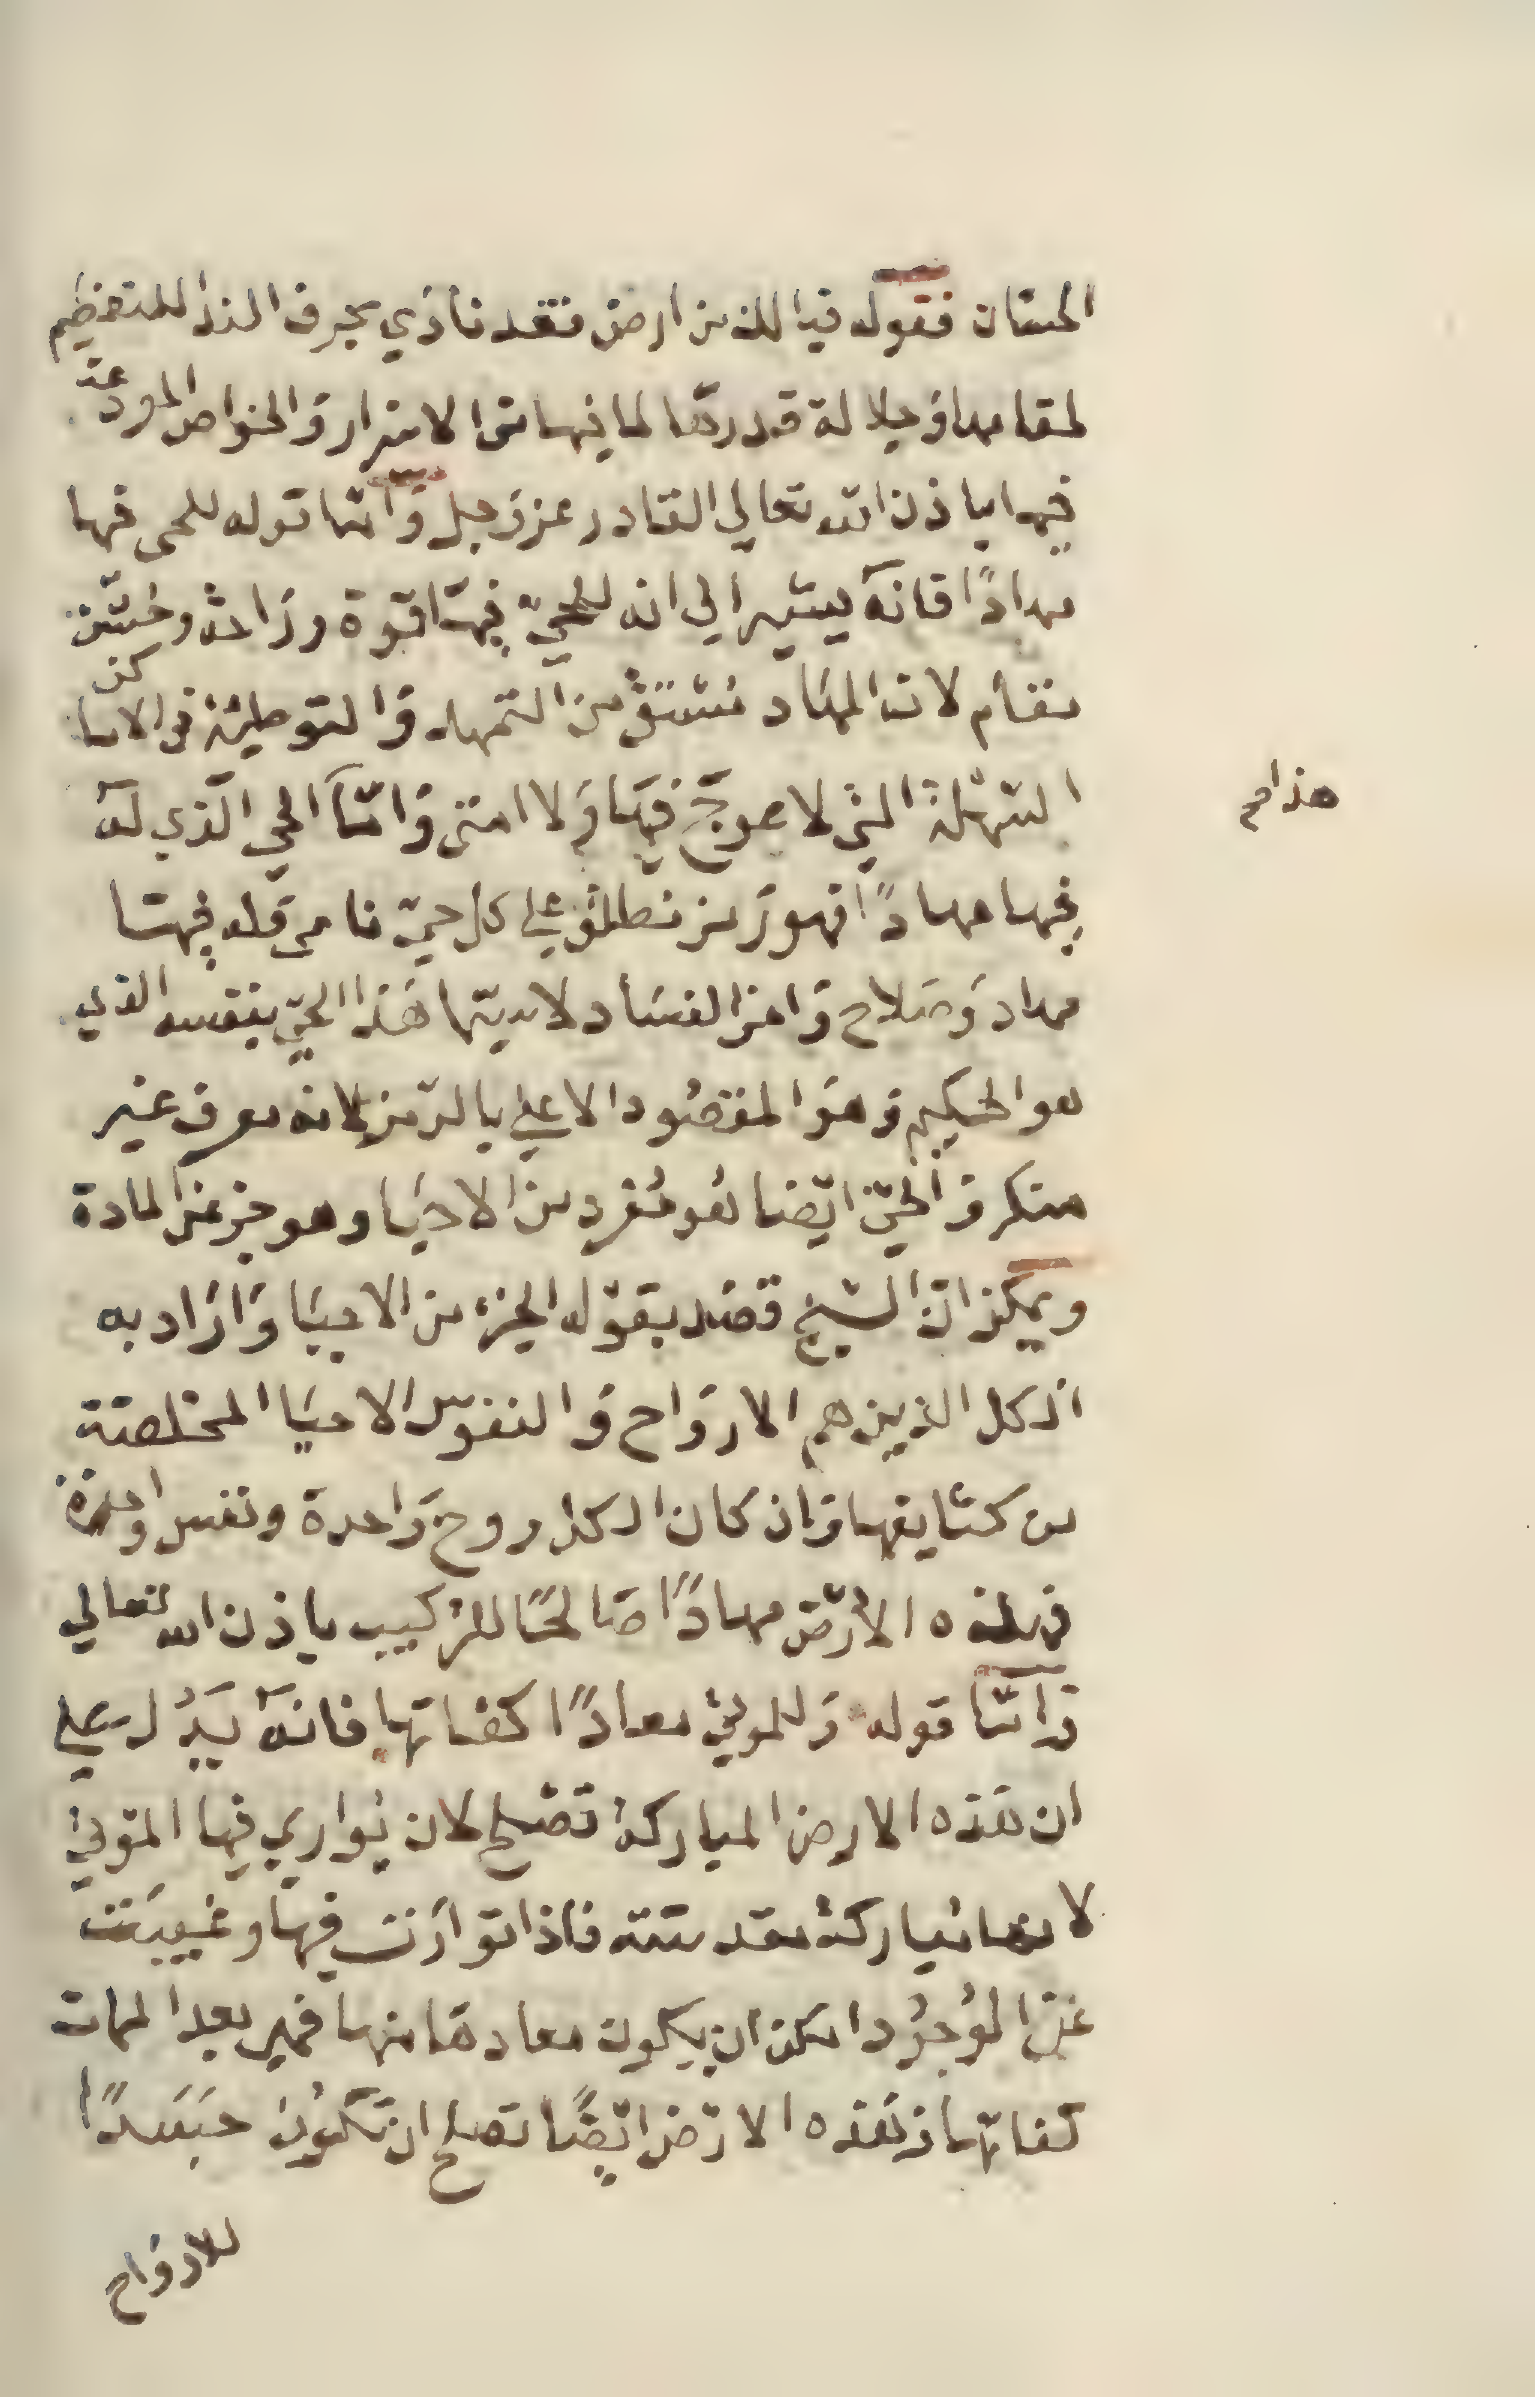 المشان فقوله فيا لك من ارض فقد نادي بحرف الندا للتعظيم
لمقامها وجلالة قدرها لما فيها من الاسرار والخواص المودعة
فيها باذن الله تعالي القادر عز وجل واما قوله للحي فيها
مهادًا فانه يشير الي انه للحي فيها قوة وراحة وحسن
مقام لان المهاد مشتق من التمهد والتوطية في الاماكن
السهلة التي لا عوج فيها ولا امتى واما الحي الذي له
فيها مهادًا فهو رمز نطلق علي كل حي نامي فله فيها
مهاد وصلاح وامن الفساد لا سيما هذا الحي بنفسه الذي
هو الحكيم وهو المقصود الاعلي بالرمز لانه معرف غير
منكر والحي ايضا هو مفرد من الاحيا وهو جز من المادة
ويمكن ان الشيخ قصد بقوله الجز من الاحيا واراد به
الكل الذين هم الارواح والنفوس الاحيا المخلصة
من كثايفها وان كان الكل روح واحدة ونفس واحدة
فهذه الارض مهادًا صالحًا للتركيب باذن الله تعالي
واما قوله وللموتي معادًا كفاتها فانه يدل علي
ان هذه الارض المباركة تصلح لان يواري فيها الموتي
لانها مباركة مقدسة فاذا توارت فيها وغيبت
عن الوجود امكن ان يكون معادها منها فهي بعد الممات
كفاتها وهذه الارض ايضًا تصلح ان تكون جسدًا
للارواح
هذا مح